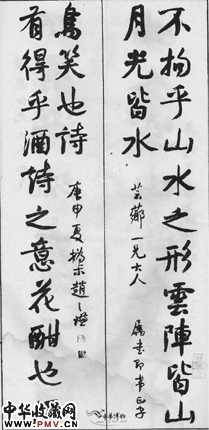 不拘乎山水之形雲陣皆山
月光皆水
芸薌一兄大人 屬書即希正字
有得乎酒詩之意花酣也
鳥笑也詩
庚申夏撝叔趙之謙
中华收藏网
www.PMV.cn